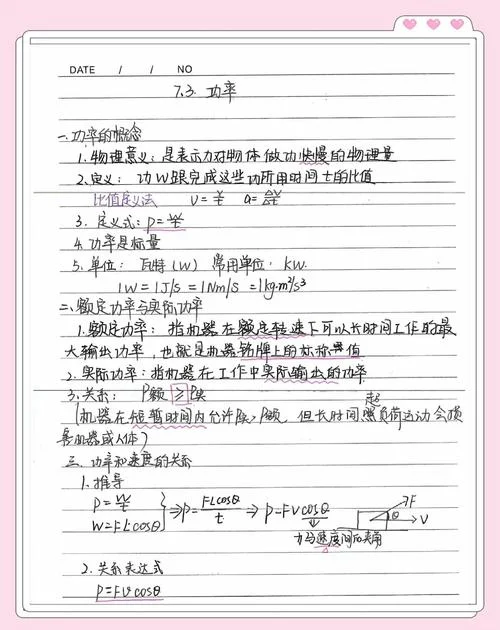 DATE / / NO
7.3. 功率
一.功率的概念
1.物理意义:是表示力对物体做功快慢的物理量
2.定义: 功W跟完成这些功所用时间t的比值
比值定义法 v=x/t a=Δv/Δt
3. 定义式: P=W/t
4.功率是标量
5.单位: 瓦特(W) 常用单位: KW.
1W=1J/s=1Nm/s=1kg·m²/s³
二.额定功率与实际功率
1.额定功率: 指机器在额定转速下可以长时间工作的最
大输出功率,也就是机器铭牌上的标称值
2.实际功率:指机器在工作中实际输出的功率
3.关系: P额≥P实
(机器在短暂时间内允许P实>P额, 但长时间超负荷运动会损
害机器或人体)
三.功率和速度的关系
1.推导
P=W/t
W=FLcosθ
⇒P=FLcosθ/t → P=FVcosθ
F
θ
V
力与速度间的夹角
2.关系表达式
P=FVcosθ